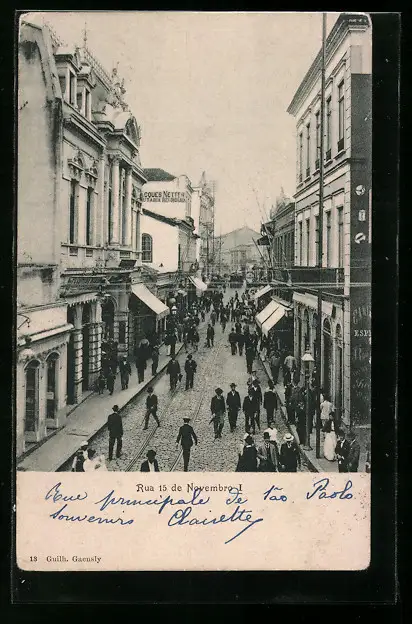 JACQUES NETTER
Rua 15 de Novembro I
Rue principale de São Paolo
souvenirs Claisette
13 Guilh. Gaensly